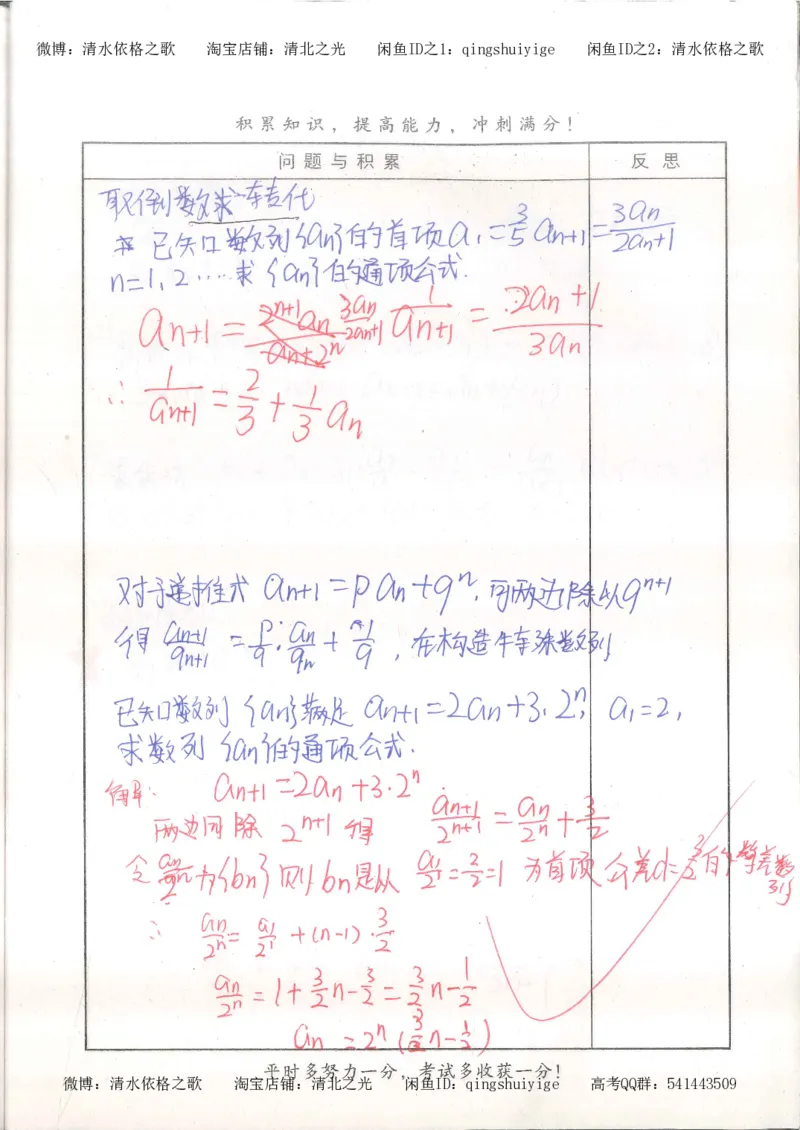 微博：清水依格之歌 淘宝店铺：清北之光 闲鱼ID之1：qingshuiyige 闲鱼ID之2：清水依格之歌
积累知识，提高能力，冲刺满分！
问题与积累 反思
取倒数求转代
已知数列{an}的首项a₁=3/5 an+1=3an/2an+1
n=1,2……求{an}的通项公式.
an+1 = 3an/2an+1 1/an+1 = 2an+1/3an
∴ 1/an+1 = 2/3 + 1/3 an
对于递推式 an+1=pan+qⁿ,可两边除以qⁿ⁺¹
得 an+1/qn+1 = p/q·an/qn + 1/q ,在构造特殊数列
已知数列{an}满足 an+1=2an+3·2ⁿ, a₁=2,
求数列{an}的通项公式.
解: an+1=2an+3·2ⁿ
两边同除 2ⁿ⁺¹ 得 an+1/2ⁿ⁺¹ = an/2ⁿ + 3/2
令 an/2ⁿ 为{bn} 则bn是从 a₁/2=2/2=1 为首项 公差d=3/2的等差数列
∴ an/2ⁿ = a₁/2¹ +(n-1)·3/2
an/2ⁿ = 1+3/2n-3/2 = 3/2n-1/2
an = 2ⁿ(3/2n-1/2)
平时多努力一分，考试多收获一分！
微博：清水依格之歌 淘宝店铺：清北之光 闲鱼ID：qingshuiyige 高考QQ群：541443509